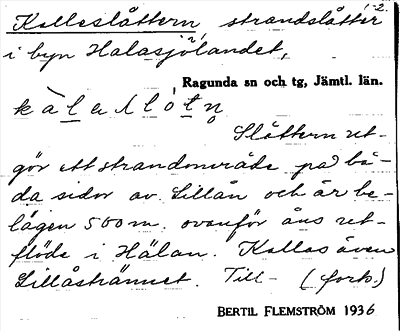 1-2.
Kalleslåttern, strandslåtter
i byn Halasjölandet,
Ragunda sn och tg, Jämtl. län.
Slåttern ut-
gör ett strandområde på bå-
da sidor av Lillån och är be-
lägen 500 m. ovanför åns ut-
flöde i Hälan. Kallas även
Lillåstrännet. Till- (forts.)
BERTIL FLEMSTRÖM 1936